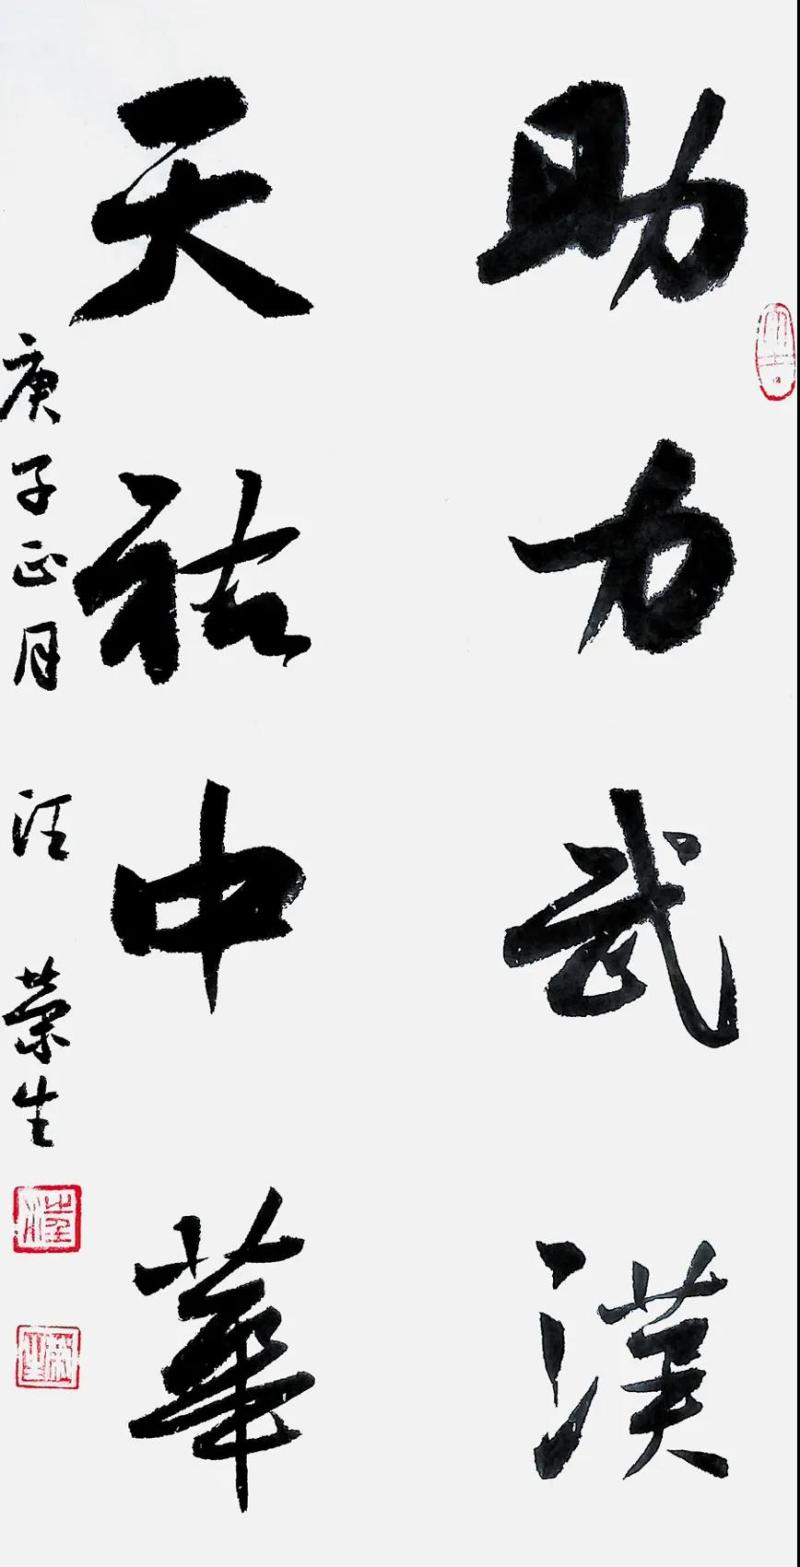 助力武漢
天祐中華
庚子正月 汪榮生